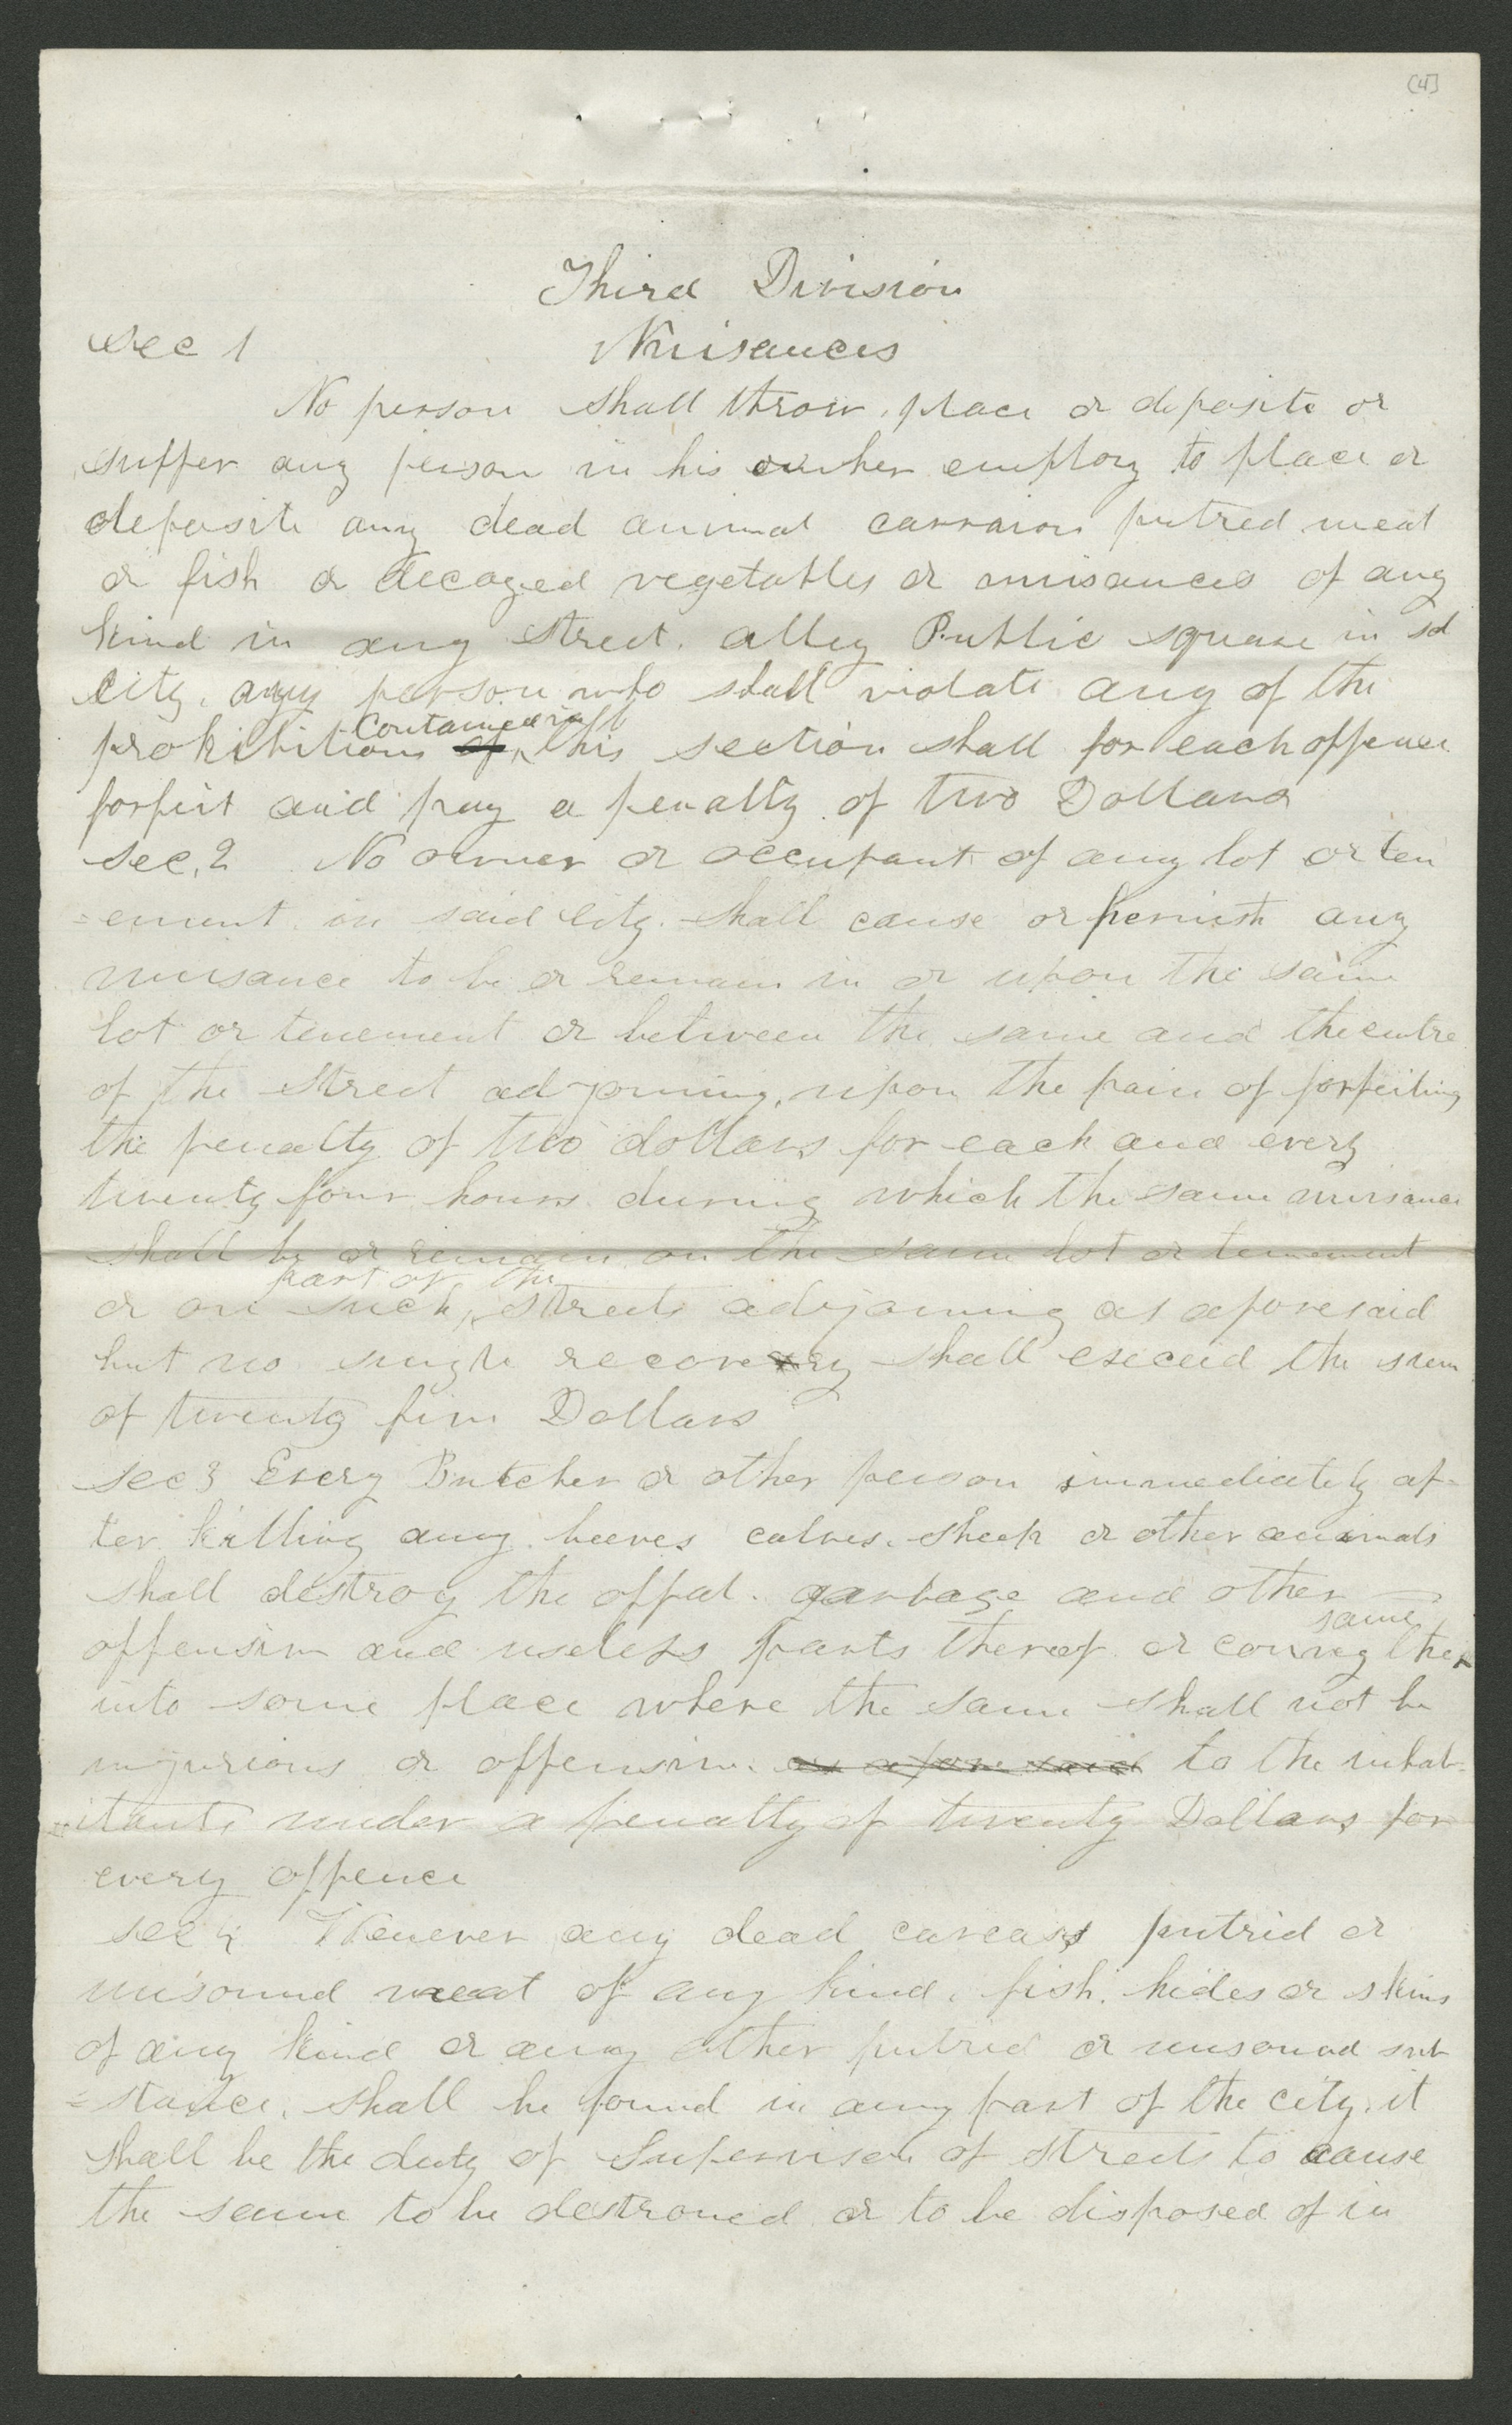 [4]
Third Division
Sec 1 Nuisances
No person shall throw, place or deposite or
suffer any person in his or her employ to place or
deposite any dead animal carraion putred meat
or fish or decayed vegetables or nuisances of any
kind in any street. alley Public square in sd
City, any person who shall violate any of the
contained in
prohibitions of this section shall for each offence
forfeit and pay a penalty of two Dollars
Sec. 2 No owner or occupant of any lot or ten
=ement in said City. shall cause or permit any
nuisance to be or remain in or upon the same
lot or tenement or between the same and the centre
of the street adjoining, upon the pain of forfeiting
the penalty of two dollars for each and every
twenty four hours during which the same nuisance
shall be or remain on the same lot or tenement
part of the
or on such streets adjoining as aforesaid
but no single recovery shall exceed the sum
of twenty five Dollars
Sec 3 Every Butcher or other person immediately af-
ter killing any beeves calves, sheep or other animals
shall destroy the offal. garbage and other
same
offensive and useless parts thereof or convey the
into some place where the same shall not be
injurious or offensive. as afore said to the inhab-
=itants under a penalty of twenty Dollars for
every offence
Sec 4 Whenever any dead carcass putrid or
unsound meat of any kind, fish, hides or skins
of any kind or any other putrid or unsound sub
=stance, shall be found in any part of the city, it
shall be the duty of Supervisor of streets to cause
the same to be destroyed or to be disposed of in